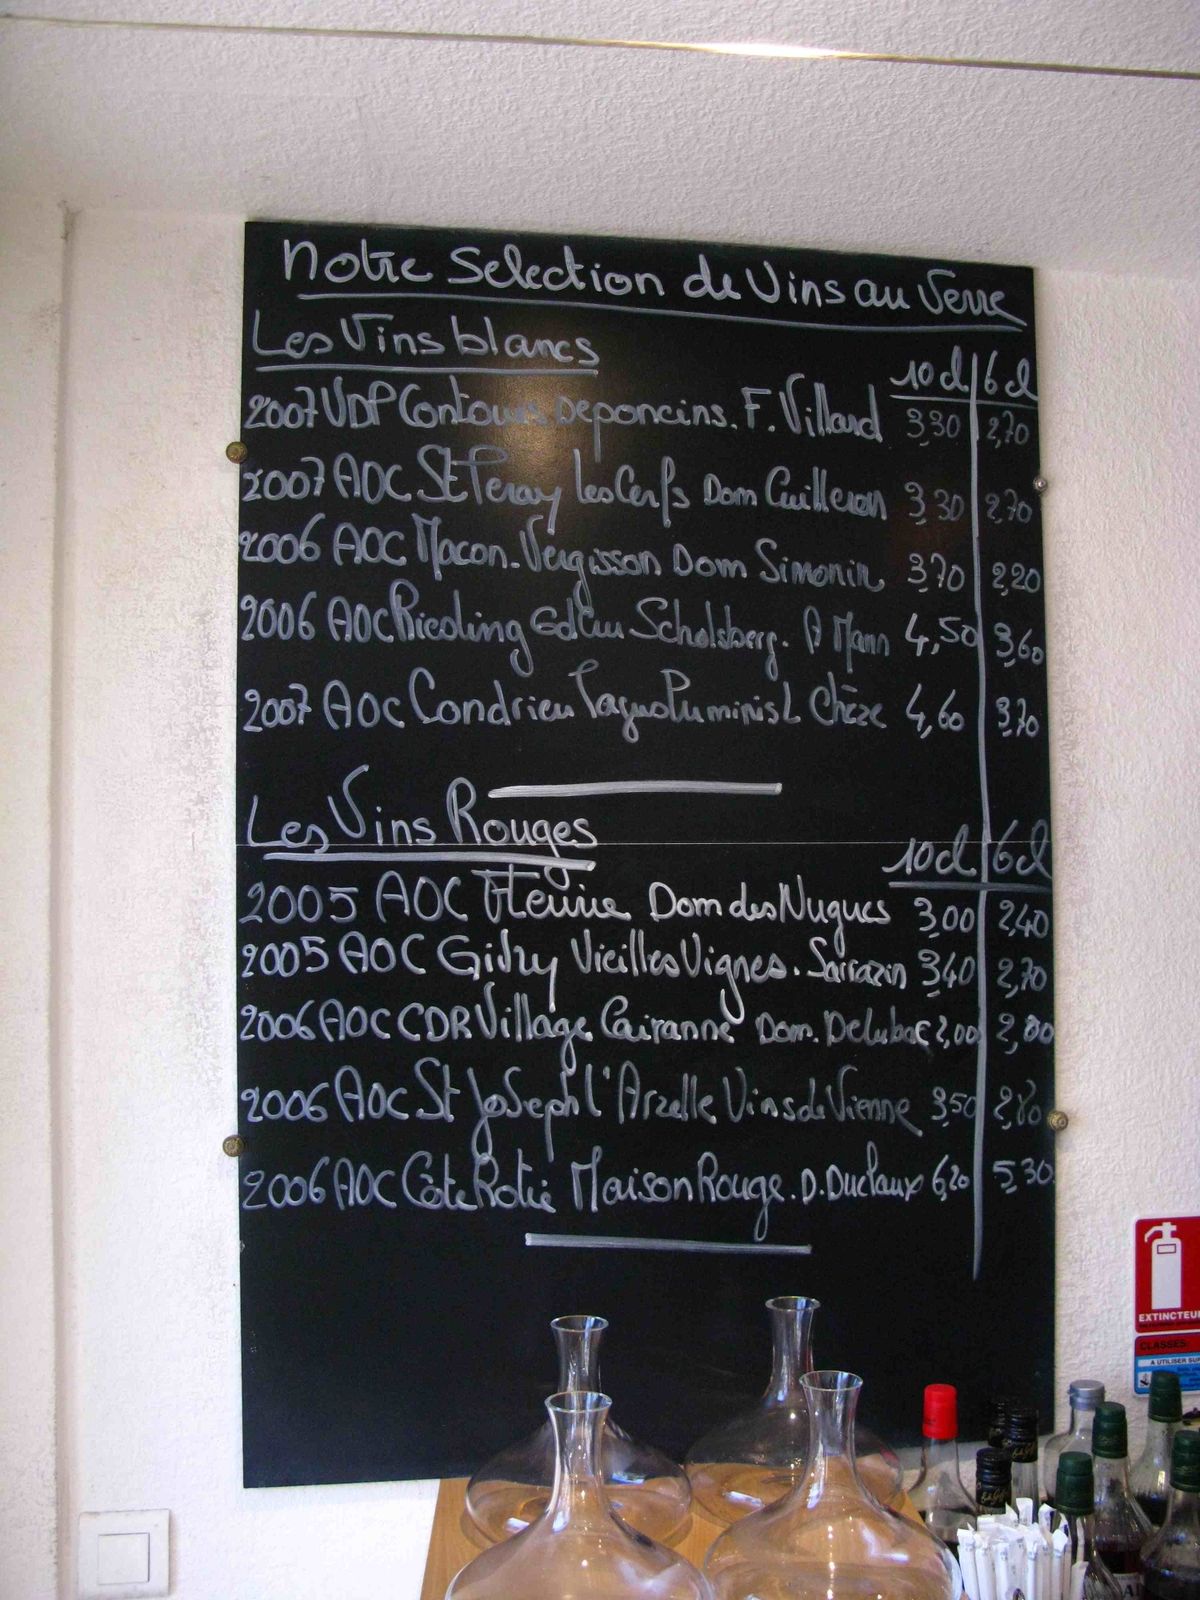 Notre Selection de Vins au Verre
Les Vins blancs
10 cl 6 cl
2007 VDP Contours Deponcins. F. Villard 3,30 2,70
2007 AOC St Peray les Cerfs Dom Cuilleron 3,30 2,70
2006 AOC Macon. Vergisson Dom Simonin 3,70 2,20
2006 AOC Riesling Gd Cru Scholsberg. A Mann 4,50 3,60
2007 AOC Condrieu L Chèze 4,60 3,70
Les Vins Rouges
10 cl 6 cl
2005 AOC Fleurie Dom des Nugues 3,00 2,40
2005 AOC Givry Vieilles Vignes. Sarrazin 3,40 2,70
2006 AOC CDR Village Cairanne Dom. Delubac
2006 AOC St Joseph l'Arzelle Vins de Vienne 3,50 2,80
2006 AOC Côte Rotie Maison Rouge. D. Duclaux 6,20 5,30
EXTINCTEUR
CLASSES
A UTILISER SUR